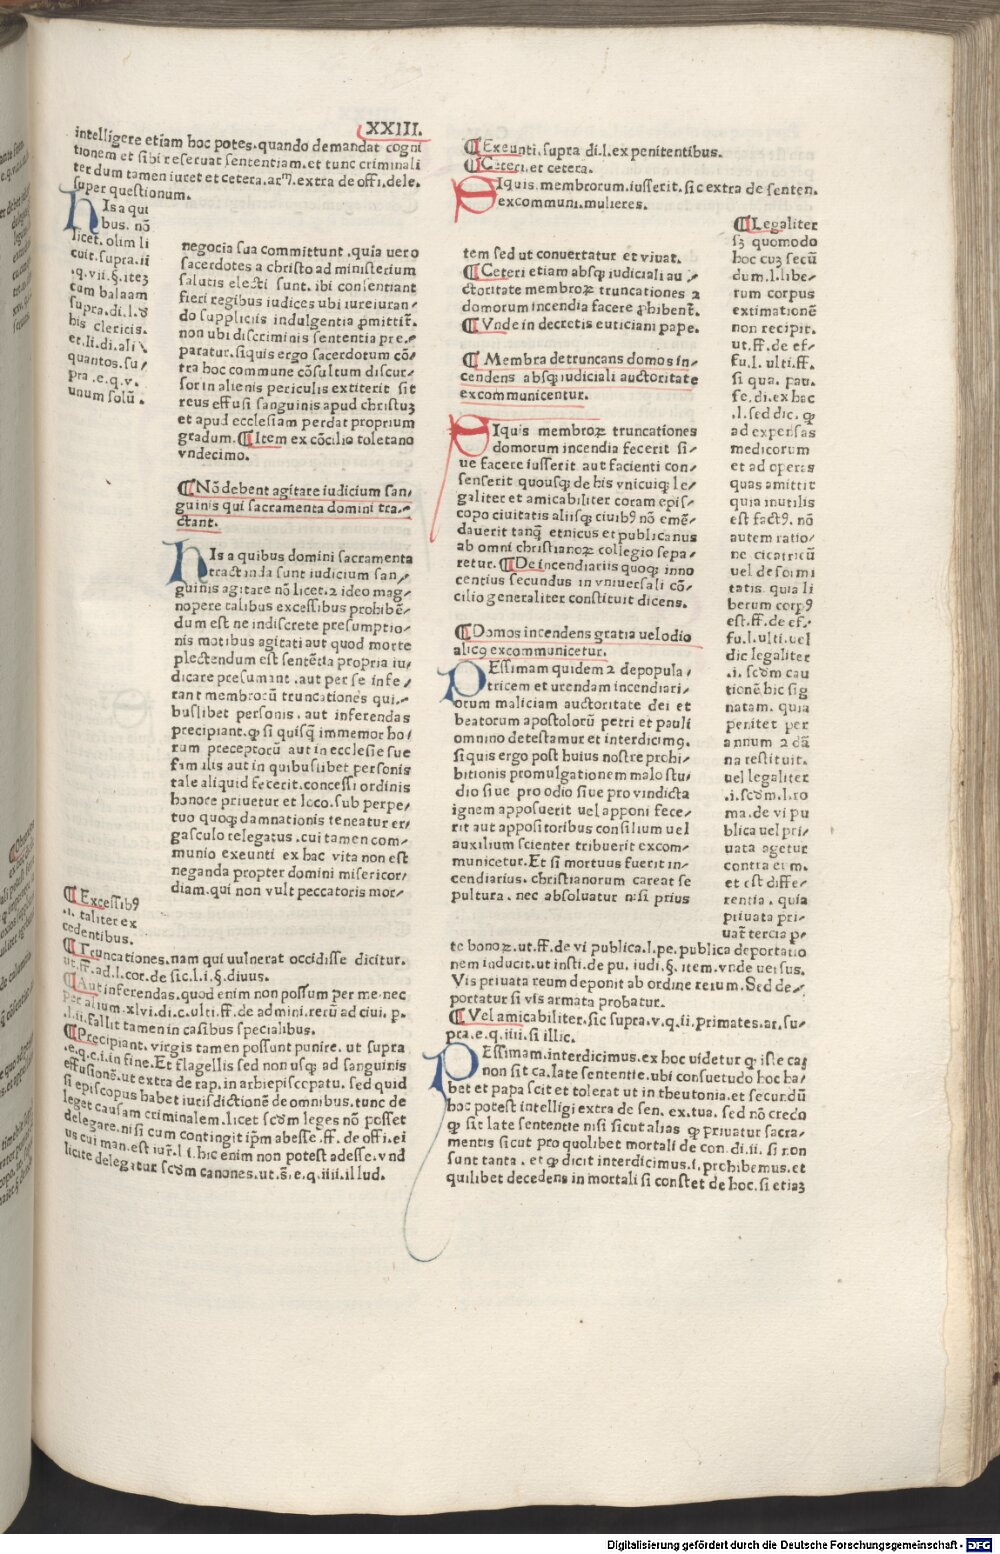 XXIII.
intelligere etiam hoc potes.quando demandat cogni
tionem et sibi reseruat sententiam.et tunc criminali
ter dum tamen iuret et cetera.arᷓ.extra de offi.dele.
super questionum.
His a qui
bus. nō
licet. olim li
cuit.supra.ii
.q.vii.§.iteʒ
cum balaam
supra.di.l.
his clericis.
et.li.di.ali
quantos.su/
pra.e.q.v.
unum solū.
negocia sua committunt.quia uero
sacerdotes a christo ad ministerium
salutis electi sunt.ibi consentiant
fieri regibus iudices ubi iureiuran-
do suppliciis indulgentia ꝓmittit᷑.
non ubi discriminis sententia pre/
paratur.siquis ergo sacerdotum cō/
tra hoc commune cōsultum discur/
sor in alienis periculis extiterit sit
reus effusi sanguinis apud christuʒ
et apud ecclesiam perdat proprium
gradum.¶Item ex cōcilio toletano
vndecimo.
¶Nō debent agitare iudicium san/
guinis qui sacramenta domini tra/
ctant.
His a quibus domini sacramenta
tractanda sunt iudicium san/
guinis agitare nō licet.2 ideo mag/
nopere talibus excessibus prohibē/
dum est ne indiscrete presumptio/
nis motibus agitati aut quod morte
plectendum est sentētia propria iu/
dicare presumant.aut per se infe/
rant membrorū truncationes qui/
buslibet personis.aut inferendas
precipiant.ꝙ si quisq̄ immemor ho/
rum preceptorū aut in ecclesie sue
familiis aut in quibuslibet personis
tale aliquid fecerit.concessi ordinis
honore priuetur et loco.sub perpe/
tuo quoqꝫ damnationis teneatur er/
gasculo relegatus.cui tamen com/
munio exeunti ex hac vita non est
neganda propter domini misericor/
diam.qui non vult peccatoris mor/
¶Excessibꝰ
.i. taliter ex
cedentibus.
¶Truncationes.nam qui vulnerat occidisse dicitur.
ut.ff.ad.l.cor.de sic.l.i.§.diuus.
¶Aut inferendas.quod enim non possum per me.nec
per alium.xlvi.di.c.ulti.ff.de admini.rerū ad ciui.p.
.l.ii.fallit tamen in casibus specialibus.
¶Precipiant.virgis tamen possunt punire.ut supra
.e.q.c.i.in fine.Et flagellis sed non usqꝫ ad sanguinis
effusionē.ut extra de rap.in archiepiscopatu.sed quid
si episcopus habet iurisdictionē de omnibus.tunc de
leget causam criminalem.licet scd̄m leges nō posset
delegare.nisi cum contingit ip̄m abesse.ff.de offi.ei
us cui man.est iur̄.l i.hic enim non potest adesse.vnd
licite delegatur scd̄m canones.ut.s̄.e.q.iiii.illud.
¶Exeunti.supra di.l.ex penitentibus.
¶Ceteri.et cetera.
Siquis.membrorum.iusserit.sic extra de senten.
excommuni.mulieres.
tem sed ut conuertatur et viuat.
¶Ceteri etiam absqꝫ iudiciali au/
ctoritate membroꝝ truncationes 2
domorum incendia facere ꝓhibent᷑.
¶Vnde in decretis euticiani pape.
¶Membra detruncans domos in/
cendens absqꝫ iudiciali auctoritate
excommunicentur.
Siquis membroꝝ truncationes
domorum incendia fecerit si/
ue facere iusserit aut facienti con/
senserit quousqꝫ de his vnicuiqꝫ le/
galiter et amicabiliter coram epis/
copo ciuitatis aliisqꝫ ciuibꝰ nō emē/
dauerit tanq̄ etnicus et publicanus
ab omni christianoꝝ collegio sepa/
retur.¶De incendiariis quoqꝫ inno
centius secundus in vniuersali cō/
cilio generaliter constituit dicens.
¶Domos incendens gratia uel odio
alicꝰ excommunicetur.
PEssimam quidem 2 depopula/
tricem et urendam incendiari/
orum maliciam auctoritate dei et
beatorum apostolorū petri et pauli
omnino detestamur et interdicimꝰ.
siquis ergo post huius nostre prohi/
bitionis promulgationem malo stu/
dio siue pro odio siue pro vindicta
ignem apposuerit uel apponi fece/
rit aut appositoribus consilium uel
auxilium scienter tribuerit excom/
municetur.Et si mortuus fuerit in/
cendiarius.christianorum careat se
pultura.nec absoluatur nisi prius
¶Legaliter
sꝫ quomodo
hoc cuʒ secū
dum.l.libe/
rum corpus
extimationē
non recipit.
ut.ff.de ef/
fu.l.ulti.ff.
si qua.pau.
fe.di.ex hac
.l.sed dic.ꝙ
ad expensas
medicorum
et ad operas
quas amittit
quia inutilis
est factꝰ.nō
autem ratio/
ne cicatricū
uel deformi
tatis.quia li
berum corpꝰ
est.ff.de ef/
fu.l.ulti.uel
dic legaliter
.i. scd̄m cau
tionē hic sig
natam. quia
penitet per
annum 2 dā
na restituit.
uel legaliter
.i.scd̄m.l.ro
ma.de vi pu
blica uel pri/
uata agetur
contra eum.
et est diffe/
rentia. quia
priuata pri/
uat᷑ tercia ꝑ/
te bonoꝝ.ut.ff.de vi publica.l.pe.publica deportatio
nem inducit.ut insti.de pu.iudi.§.item.vnde uersus.
Vis priuata reum deponit ab ordine rerum.Sed de/
portatur si vis armata probatur.
¶Vel amicabiliter.sic supra.v.q.ii.primates.ar.su/
pra.e.q.iiii.si illic.
PEssimam.interdicimus.ex hoc uidetur ꝙ iste caʒ
non sit ca.late sententie.ubi consuetudo hoc ha/
bet et papa scit et tolerat ut in theutonia.et secundū
hoc potest intelligi extra de sen.ex.tua.sed nō credo
ꝙ sit late sententie nisi sicut alias ꝙ priuatur sacra/
mentis sicut pro quolibet mortali de con.di.ii. si non
sunt tanta.et ꝙ dicit interdicimus.i.prohibemus.et
quilibet decedens in mortali si constet de hoc.si etiaʒ
Digitalisierung gefördert durch die Deutsche Forschungsgemeinschaft - DFG